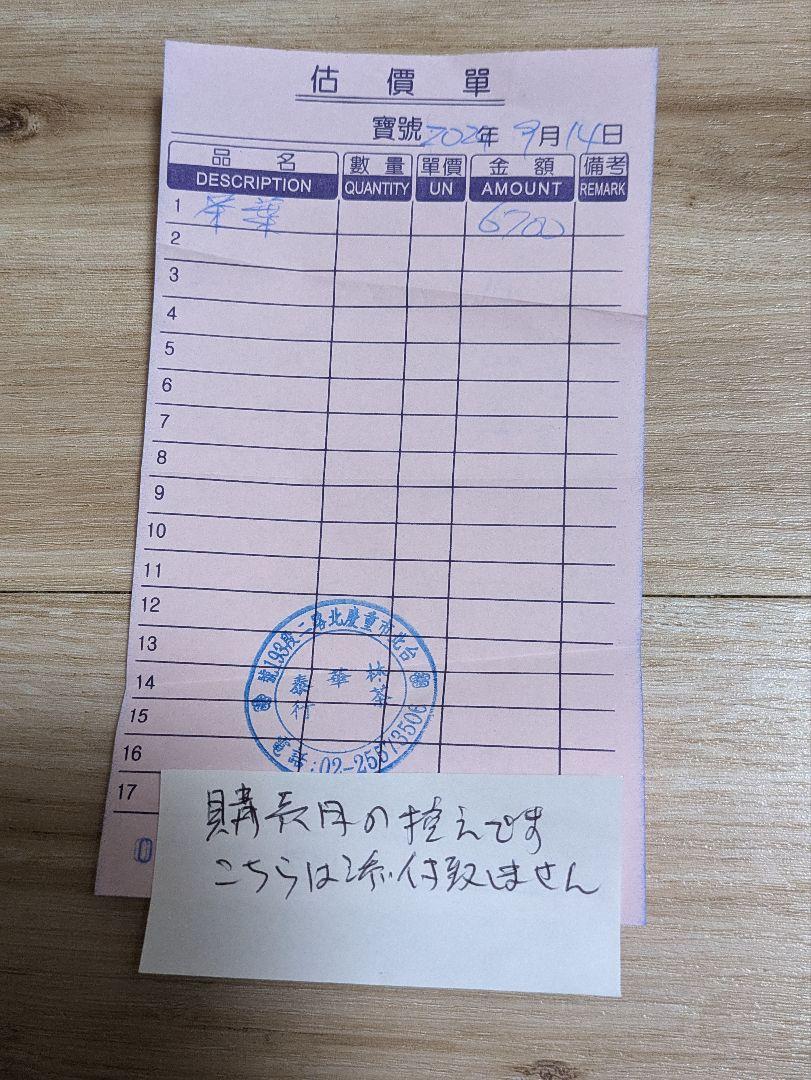 估價單
寶號 2024年 9月14日
品名 數量 單價 金額 備考
DESCRIPTION QUANTITY UN AMOUNT REMARK
1 茶葉 6700
2
3
4
5
6
7
8
9
10
11
12
13
14
15
16
17
台北市重慶北路二段193號
林華泰
茶行
電話:02-25573506
0
購入時の控えです
こちらは添付致しません